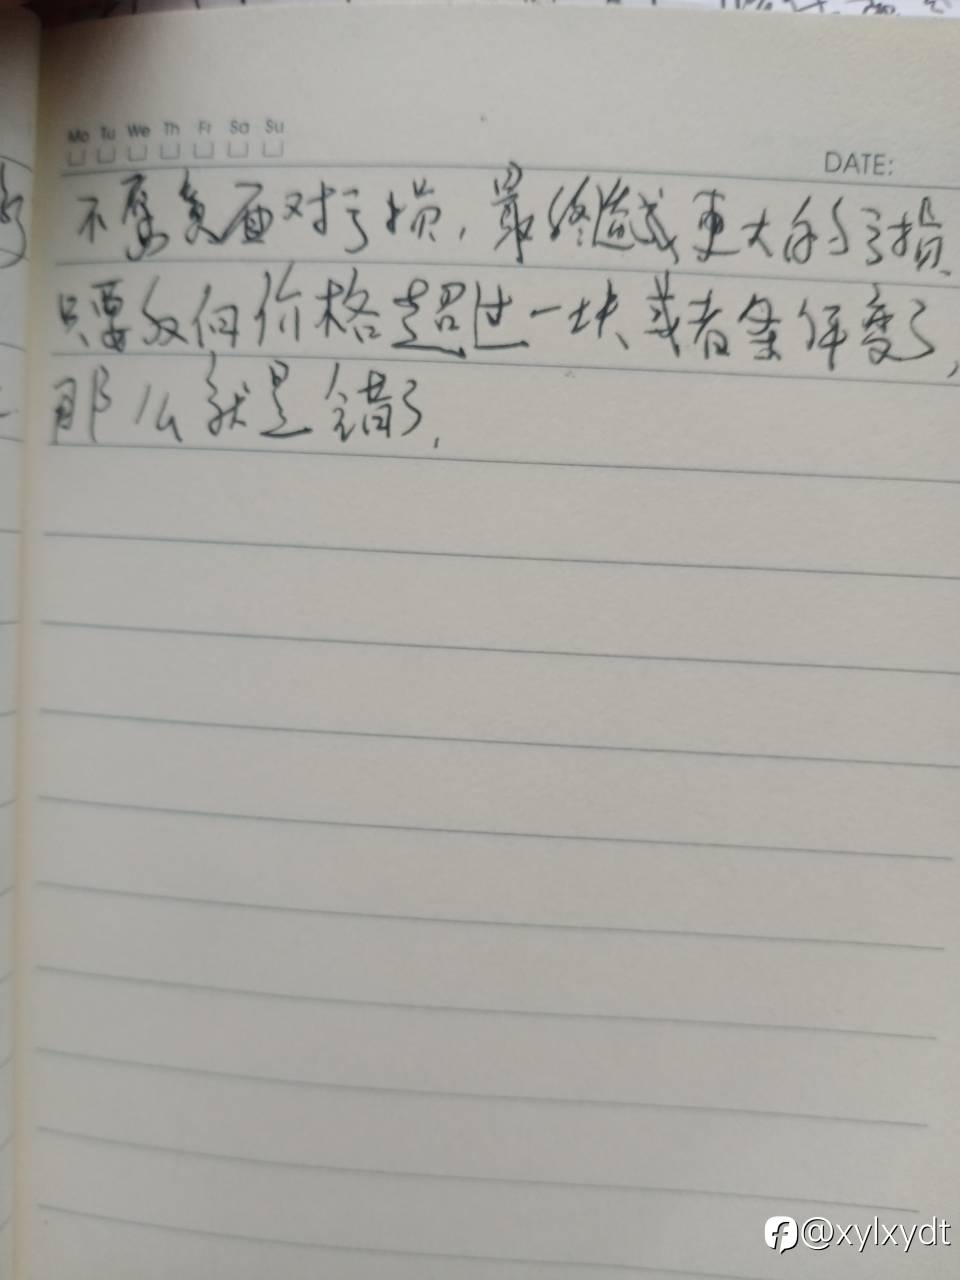 Mo Tu We Th Fr Sa Su
DATE:
不愿负面对亏损,最终造成更大的亏损、
只要反向价格超过一块或者条件变了,
那么就是错了,
@xylxydt